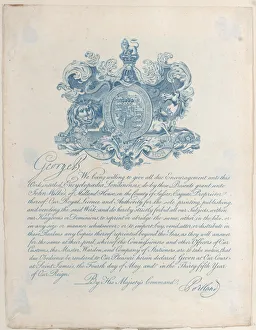 George R.
We being willing to give all due Encouragement unto this
Work entitled Encyclopædia Londinensis, do by these Presents grant unto
John Wilkes, of Milland House, in the County of Sussex, Esquire, Proprietor
thereof, Our Royal License and Authority for the sole printing, publishing,
and vending the said Work, and do hereby strictly forbid all our Subjects within
our Kingdoms or Dominions, to reprint or abridge the same, either in the like, or
in any size, or manner whatsoever; or to import, buy, vend, utter, or distribute
these Presents any Copies thereof reprinted beyond the Seas, as they will answer
for the same at their peril, whereof the Commissioners and other Officers of Our
Customs, the Master, Wardens and Company of Stationers are to take notice, that
due Obedience be rendered to Our Pleasure herein declared. Given at Our Court
at Saint James's, the Fourth day of May, 179 in the Thirty fifth Year
of Our Reign.
By His Majesty's Command
Portland